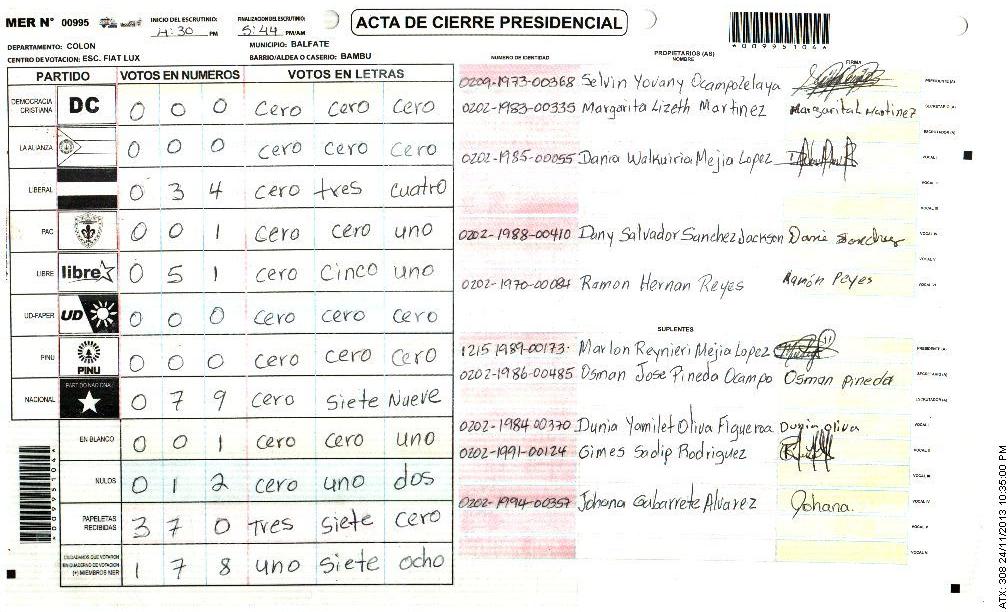 MER N° 00995
INICIO DEL ESCRUTINIO:
4:30 PM
FINALIZACION DEL ESCRUTINIO:
5:44 PM/AM
ACTA DE CIERRE PRESIDENCIAL
*00995104*
DEPARTAMENTO: COLON
MUNICIPIO: BALFATE
CENTRO DE VOTACION: ESC. FIAT LUX
BARRIO/ALDEA O CASERIO: BAMBU
PARTIDO VOTOS EN NUMEROS VOTOS EN LETRAS
DEMOCRACIA CRISTIANA DC 0 0 0 cero cero cero
LA ALIANZA 0 0 0 cero cero cero
LIBERAL 0 3 4 cero tres cuatro
PAC 0 0 1 cero cero uno
LIBRE libre 0 5 1 cero cinco uno
UD-FAPER UD 0 0 0 cero cero cero
PINU PINU 0 0 0 cero cero cero
NACIONAL PARTIDO NACIONAL 0 7 9 cero siete Nueve
EN BLANCO 0 0 1 cero cero uno
NULOS 0 1 2 cero uno dos
PAPELETAS RECIBIDAS 3 7 0 Tres siete cero
CIUDADANOS QUE VOTARON EN CUADERNO DE VOTACION (+) MIEMBROS MER 1 7 8 uno siete ocho
NUMERO DE IDENTIDAD
PROPIETARIOS (AS)
NOMBRE
FIRMA
0209-1973-00368 Selvin Yovany Ocampo Zelaya PRESIDENTE(A)
0202-1983-00335 Margarita Lizeth Martinez Margarita L Martinez SECRETARIO(A)
ESCRUTADOR(A)
0202-1985-00055 Dania Walkuiria Mejia Lopez VOCAL I
VOCAL II
VOCAL III
0202-1988-00410 Dany Salvador Sanchez Jackson VOCAL IV
VOCAL V
0202-1970-00084 Ramon Hernan Reyes Ramón Reyes VOCAL VI
SUPLENTES
1215 1989-00173- Marlon Reynieri Mejia Lopez PRESIDENTE(A)
0202-1986-00485 Osman Jose Pineda Ocampo Osman pineda SECRETARIO(A)
ESCRUTADOR(A)
0202-1984-00370 Dunia Yamilet Oliva Figueroa Dunia oliva VOCAL I
0202-1991-00124 Gimes Sadip Rodriguez VOCAL II
VOCAL III
0202-1994-00357 Johana Gabarrete Alvarez Johana. VOCAL IV
VOCAL V
VOCAL VI
*00995104*
ATX: 308 24/11/2013 10:35:00 PM